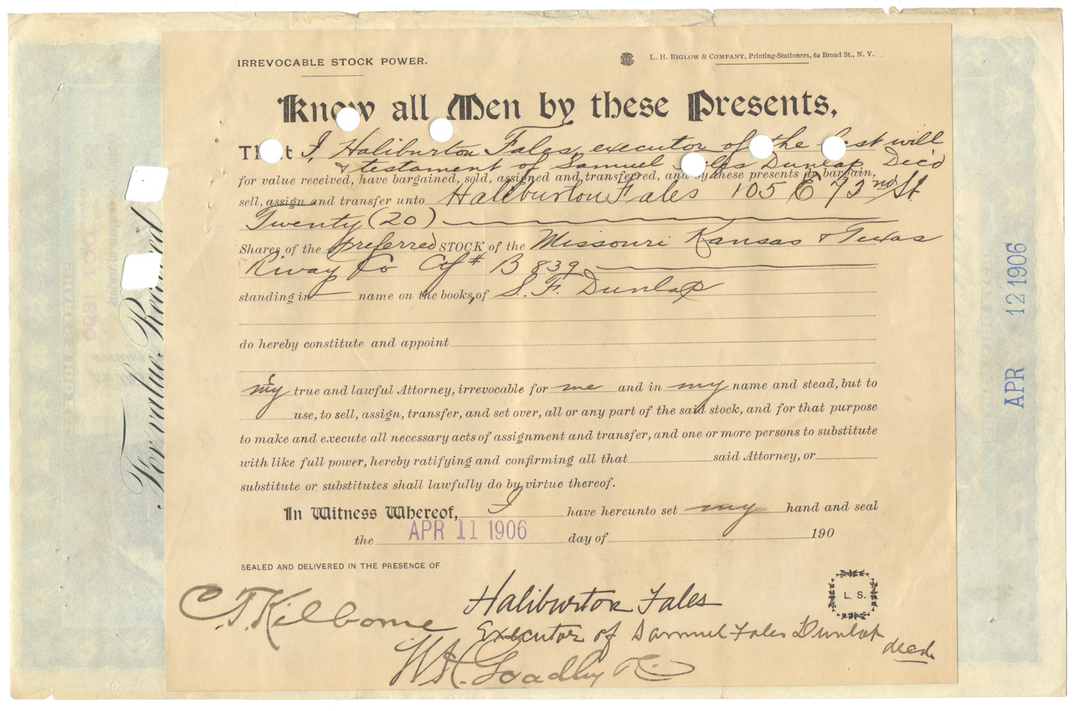 IRREVOCABLE STOCK POWER.
L. H. BIGLOW & COMPANY, Printing-Stationers, 62 Broad St., N. Y.
Know all Men by these Presents,
That I, Haliburton Fales, executor of the last will
& testament of Samuel Fales Dunlap Dec'd
for value received, have bargained, sold, assigned and transferred, and by these presents do bargain,
sell, assign and transfer unto Haliburton Fales 105 E 73nd St
Twenty (20)
Shares of the preferred STOCK of the Missouri Kansas & Texas
Rway Co Ctf # B 839
standing in name on the books, of S. F. Dunlap
do hereby constitute and appoint
my true and lawful Attorney, irrevocable for me and in my name and stead, but to
use, to sell, assign, transfer, and set over, all or any part of the said stock, and for that purpose
to make and execute all necessary acts of assignment and transfer, and one or more persons to substitute
with like full power, hereby ratifying and confirming all that said Attorney, or
substitute or substitutes shall lawfully do by virtue thereof.
In Witness Whereof, I have hereunto set my hand and seal
the APR 11 1906 day of 190
SEALED AND DELIVERED IN THE PRESENCE OF
C. T. Kilborne
Haliburton Fales
L. S.
Executor of Samuel Fales Dunlap
decd.
W H Goadby
For value Received
APR 12 1906